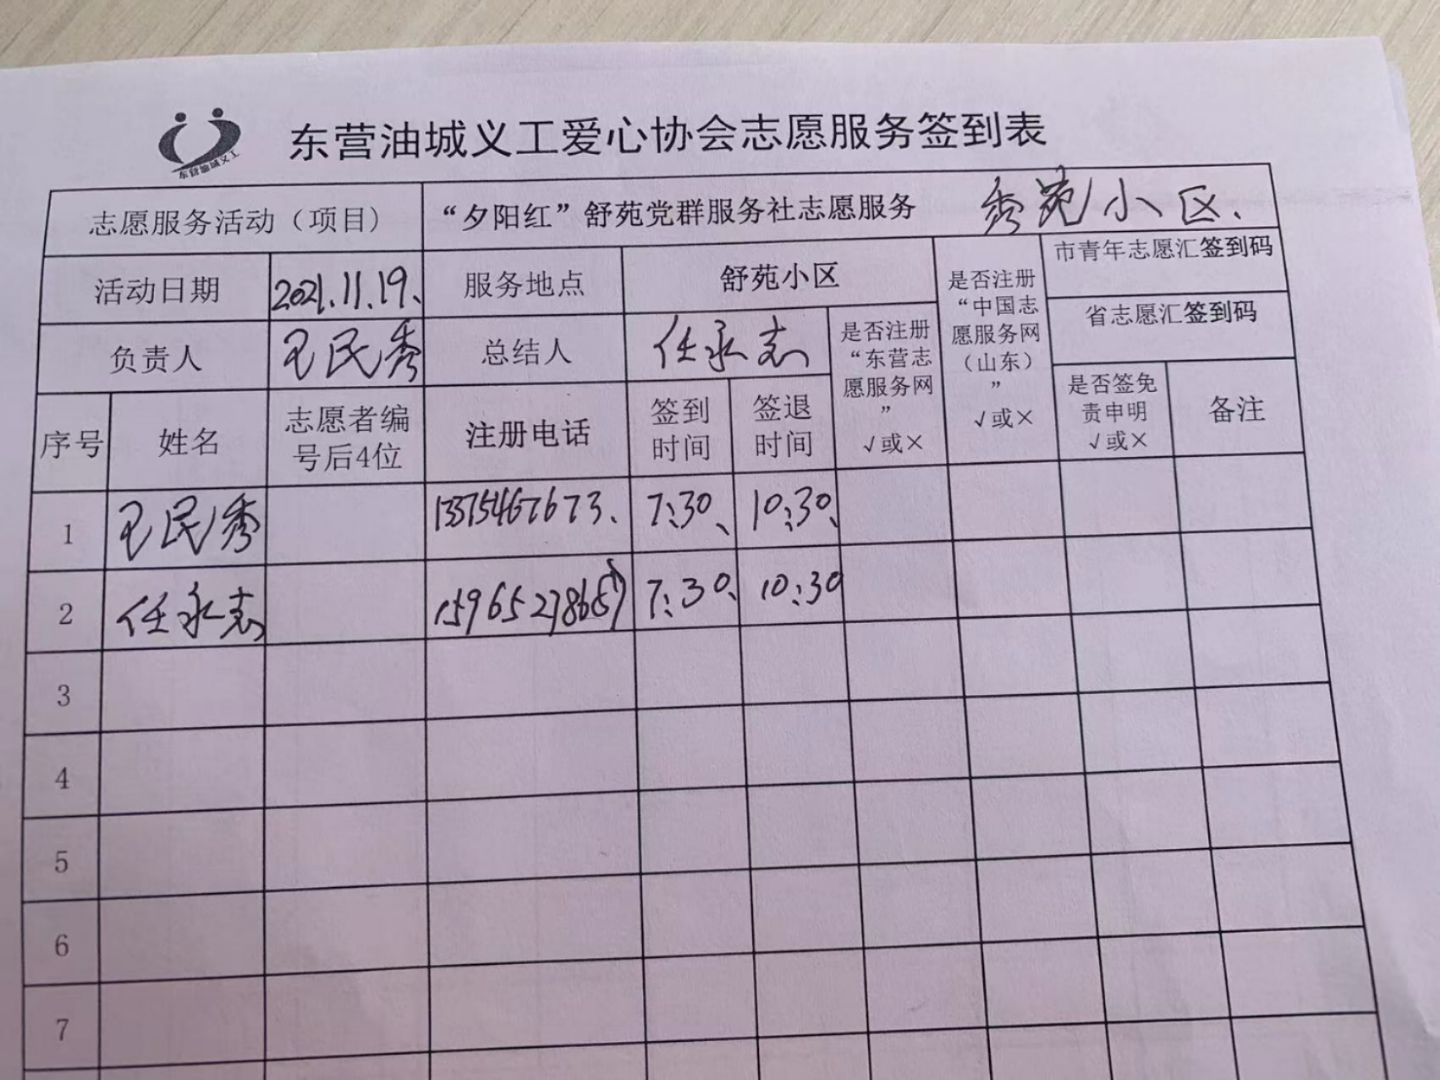 东营油城义工
东营油城义工爱心协会志愿服务签到表
志愿服务活动（项目） “夕阳红”舒苑党群服务社志愿服务 秀苑小区.
活动日期 2021.11.19. 服务地点 舒苑小区 是否注册“中国志愿服务网（山东）” √或× 市青年志愿汇签到码
省志愿汇签到码
负责人 王民秀 总结人 任永志 是否注册“东营志愿服务网” √或×
序号 姓名 志愿者编号后4位 注册电话 签到时间 签退时间 是否签免责申明 √或× 备注
1 王民秀 13375467673. 7:30、 10:30、
2 任永志 15965278657 7:30、 10:30
3
4
5
6
7